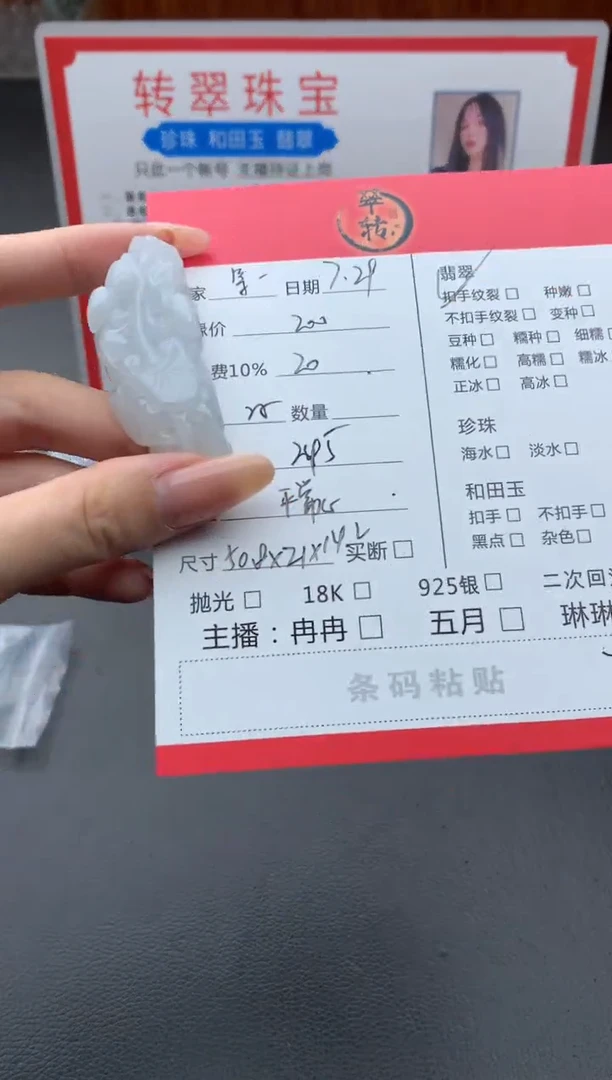 转翠珠宝
珍珠 和田玉 翡翠
只此一个帐号 主播持证上岗
翠
转
家 日期 7.29
价 200
费10% 20
数量
尺寸 50.8X21X14.2 买断
抛光 18K 925银 二次回
主播：冉冉 五月 琳琳
条码粘贴
翡翠
扣手纹裂 种嫩
不扣手纹裂 变种
豆种 糯种 细糯
糯化 高糯 糯冰
正冰 高冰
珍珠
海水 淡水
和田玉
扣手 不扣手
黑点 杂色